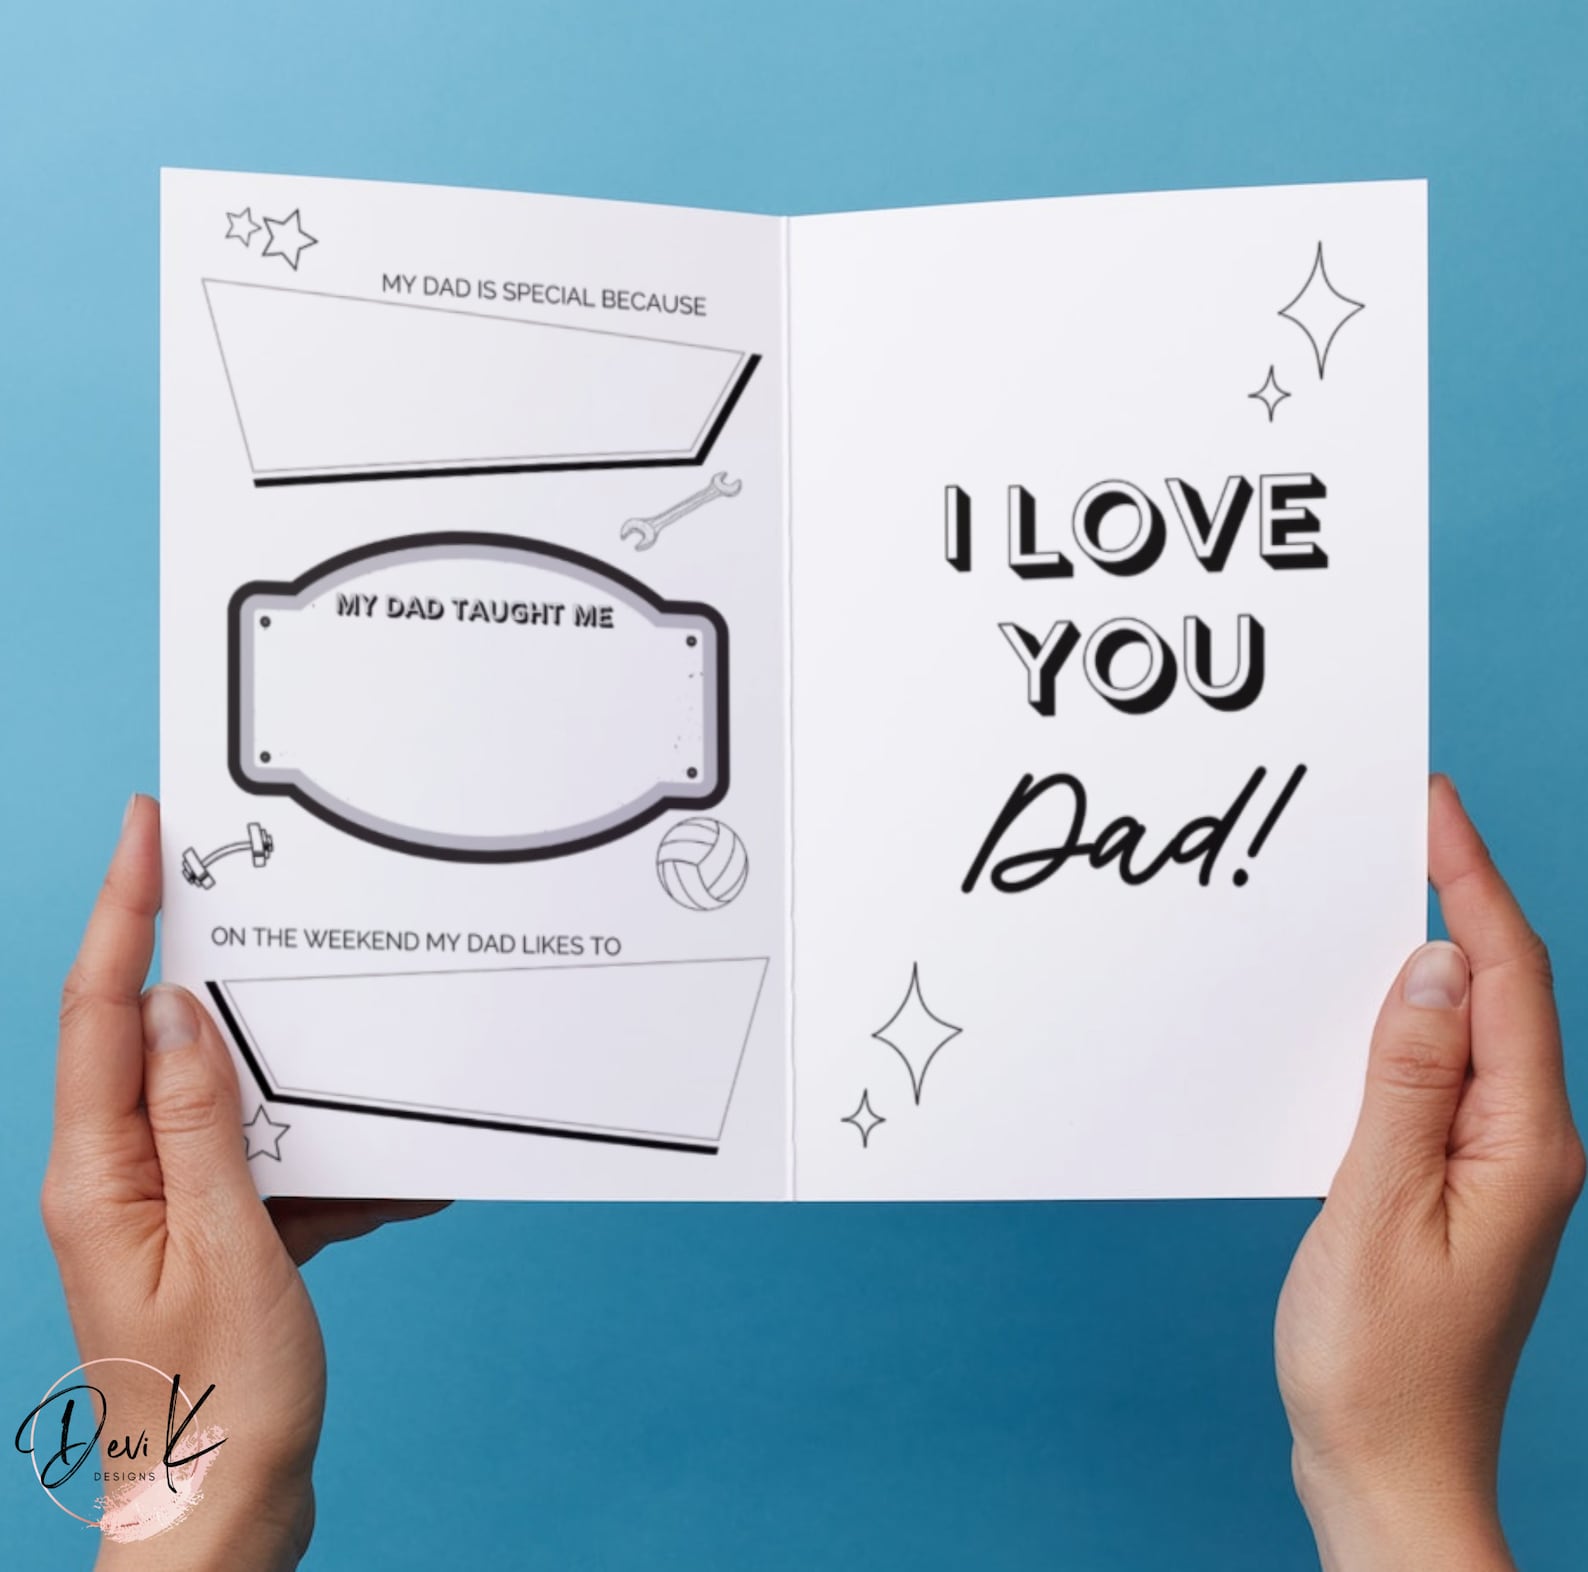 MY DAD IS SPECIAL BECAUSE
MY DAD TAUGHT ME
ON THE WEEKEND MY DAD LIKES TO
I LOVE
YOU
Dad!
Devi K
DESIGNS